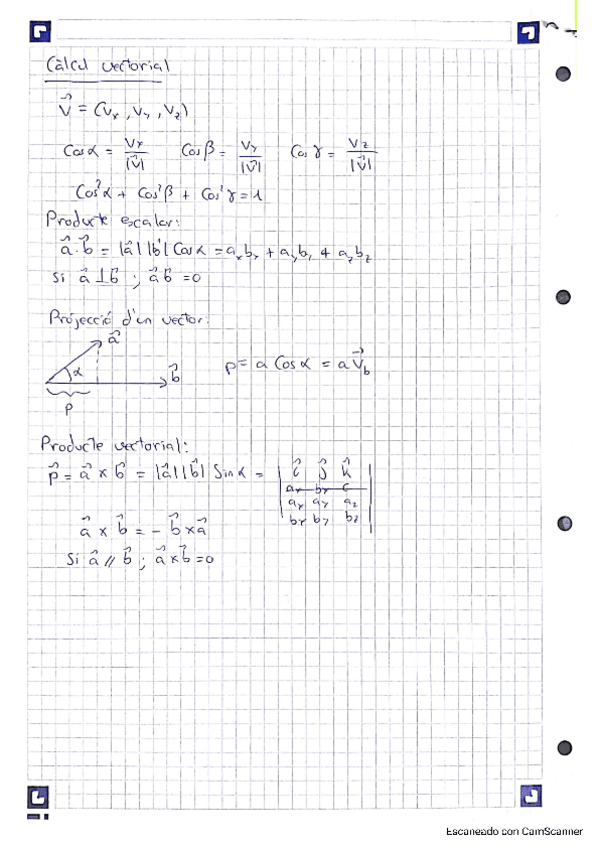 Càlcul vectorial
v⃗ = (Vx, Vy, Vz)
Cosα = Vx/|v⃗| Cosβ = Vy/|v⃗| Cosγ = Vz/|v⃗|
Cos²α + Cos²β + Cos²γ = 1
Producte escalar:
a⃗·b⃗ = |a⃗||b⃗| Cosα = axbx + ayby + azbz
Si a⃗ ⊥ b⃗ ; a⃗ b⃗ = 0
Projecció d'un vector:
a⃗
α
b⃗
p
p = a Cosα = a v⃗b
Producte vectorial:
p⃗ = a⃗ × b⃗ = |a⃗||b⃗| Sinα = | i⃗ j⃗ k⃗ |
ax bx c
ax ay az
bx by bz
a⃗ × b⃗ = - b⃗ × a⃗
Si a⃗ // b⃗ ; a⃗ × b⃗ = 0
Escaneado con CamScanner